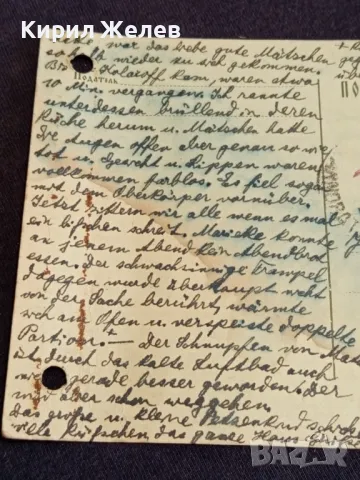 Кирил Желев
war das liebe gute Mätschen
so halb wieder zu sich gekommen.
Податель
Bis Kolaroff kam, waren etwa
10 Min. vergangen. Ich rannte
unterdessen brüllend in deren
Küche herum u. Mätschen hatte
die Augen offen aber genau so wie
tot u. Gesicht u. Lippen waren
vollkommen farblos. Es fiel sogar
mit dem Oberkörper vornüber.
Jetzt zittern wir alle wenn es mal
ein bißchen schreit. Marieke konnte
an jenem Abend kein Abendbrot
essen. Der schwachsinnige Trampel
dagegen wurde überhaupt nicht
von der Sache berührt, wärmte
sich am Ofen u. verspeiste doppelte
Portion. — Der Schnupfen von
ist durch das kalte Luftbad auch
nicht gerade besser geworden. Der
wird aber schon weggehen.
Das große u. kleine
viele Küßchen das ganze Haus
ПО
bazar.bg